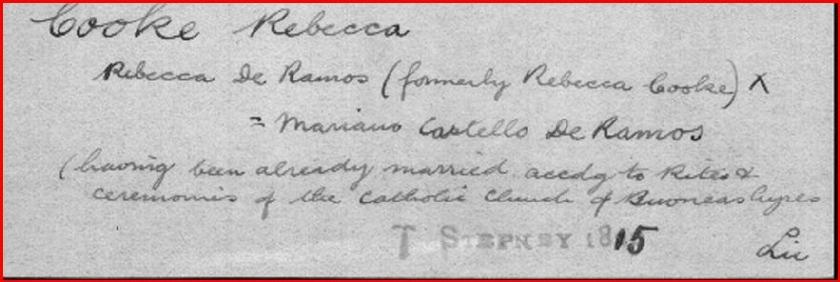 Cooke Rebecca
Rebecca De Ramos (formerly Rebecca Cooke) X
= Mariano Castello De Ramos
(having been already married accdg to Rites &
ceremonies of the Catholic Church of Buoneas Ayres
T STEPNEY 1815
Liv